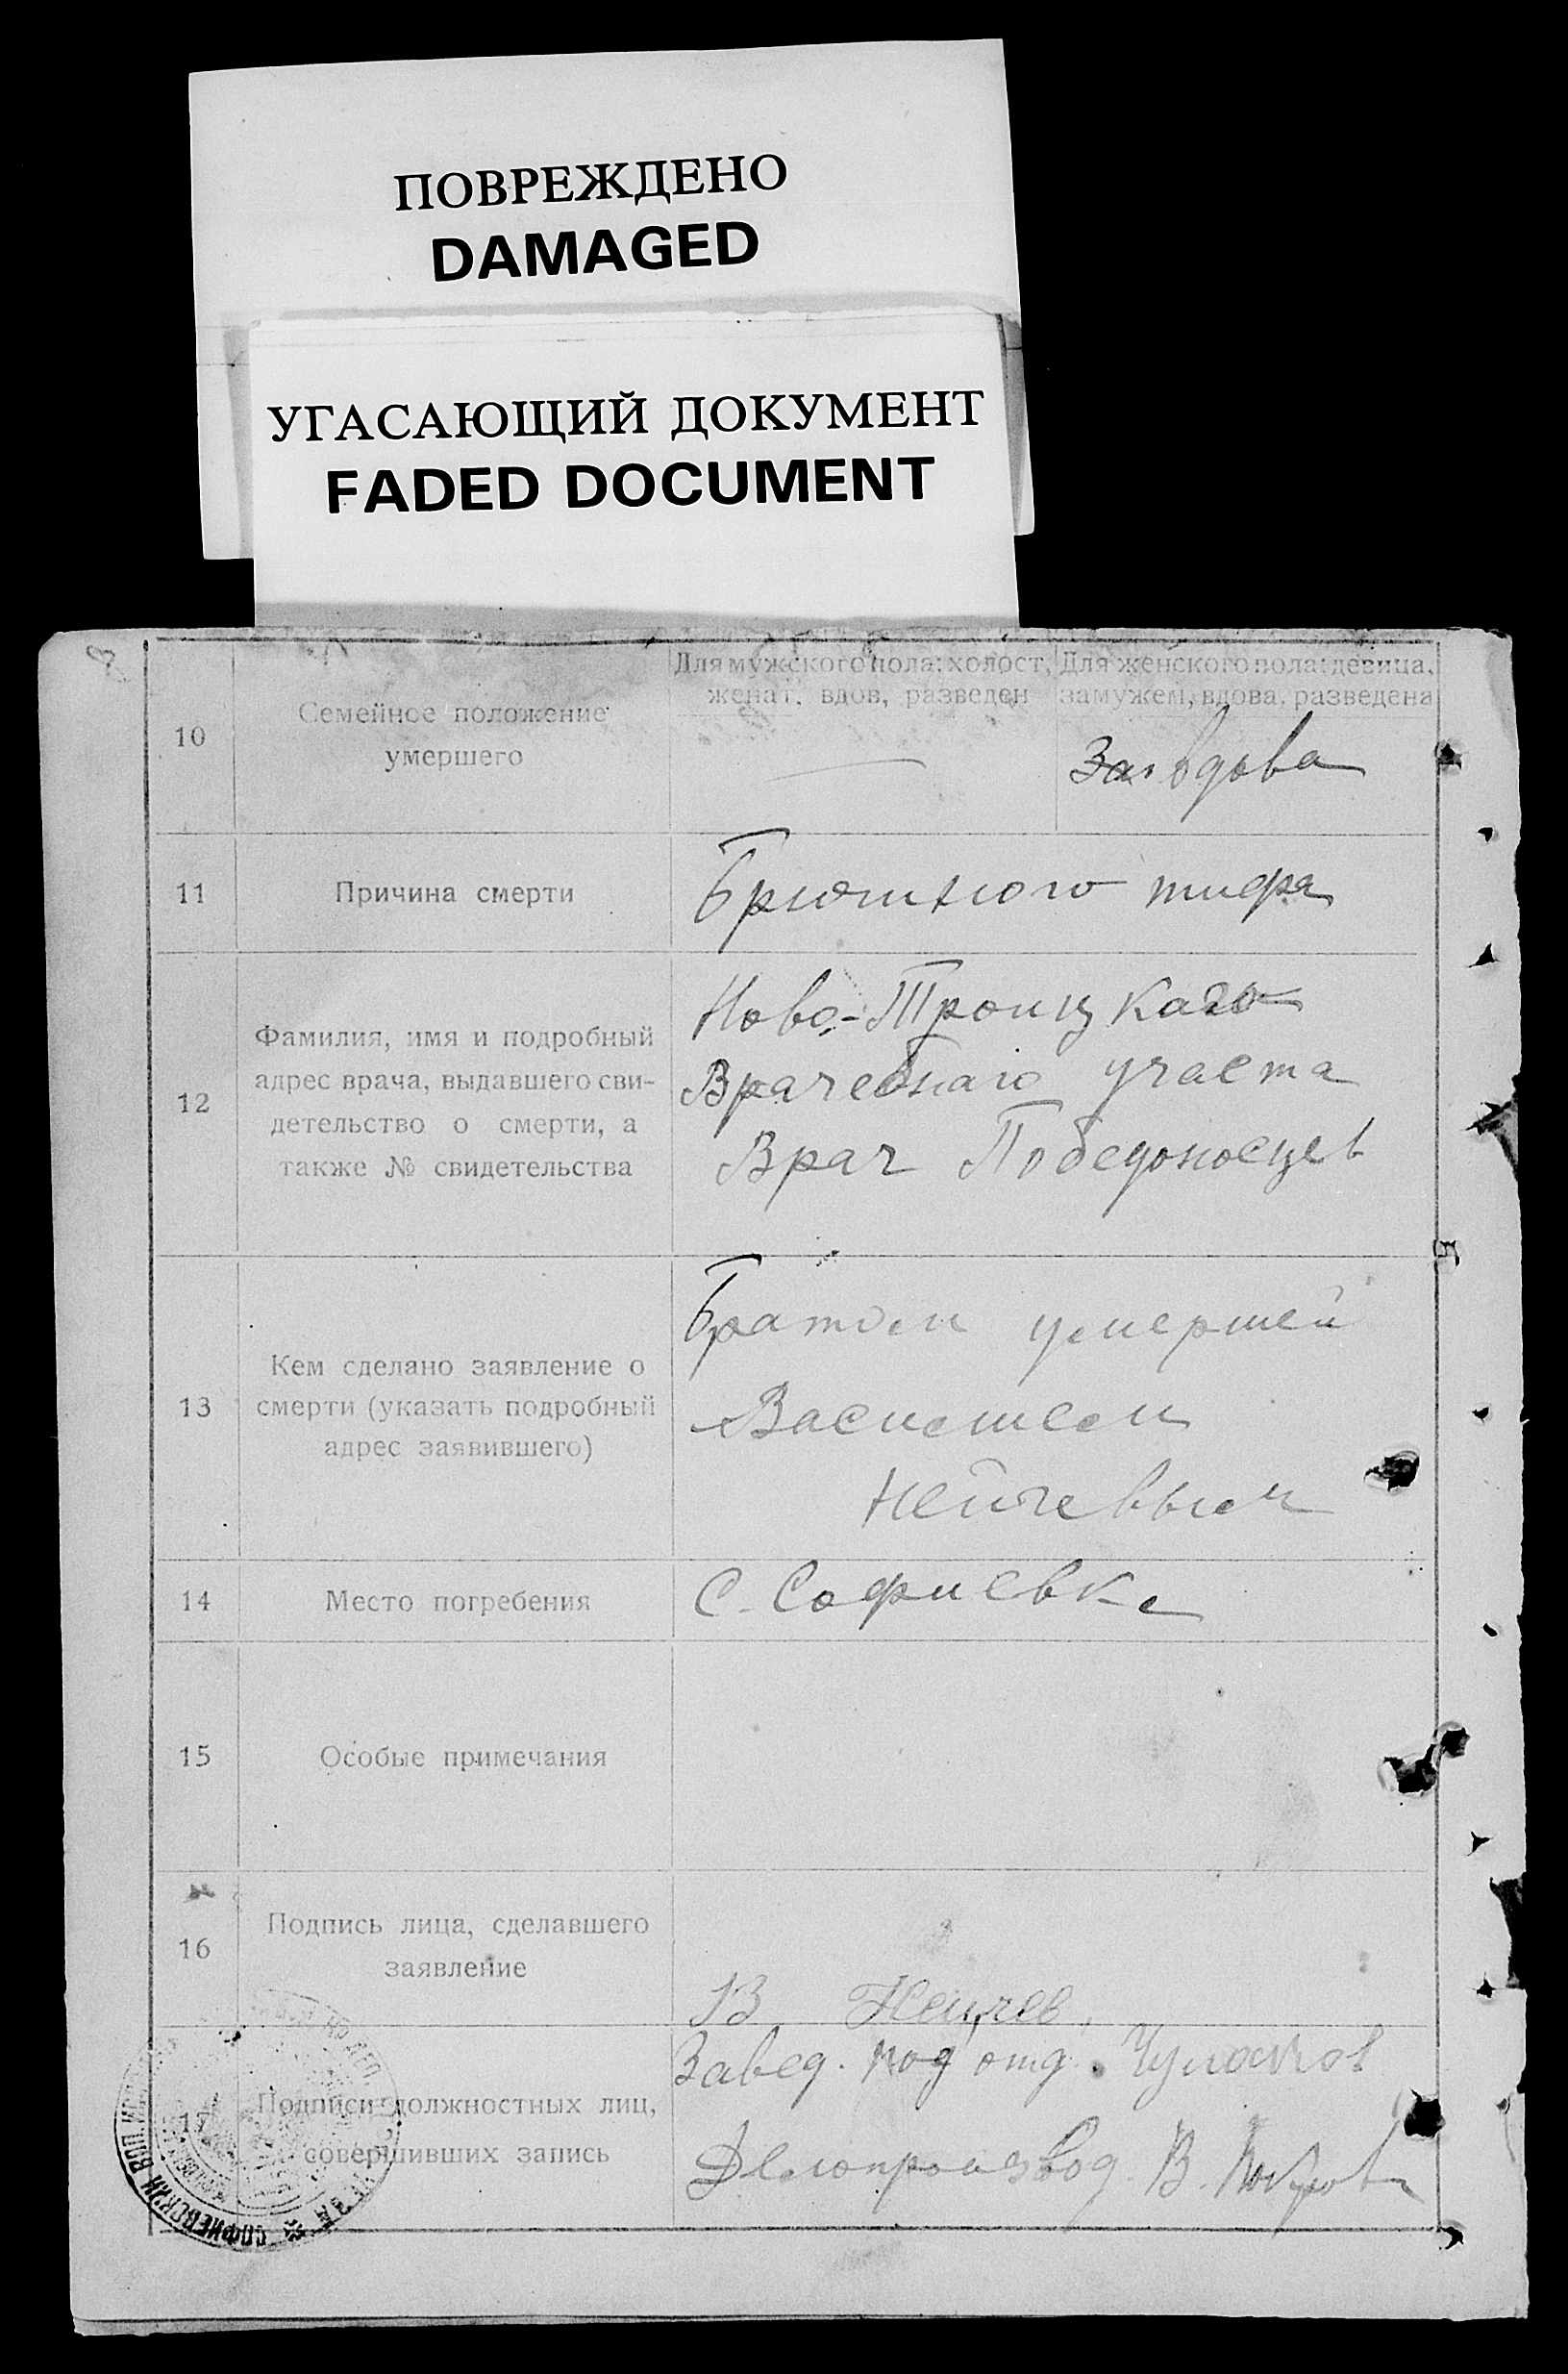 ПОВРЕЖДЕНО
DAMAGED
УГАСАЮЩИЙ ДОКУМЕНТ
FADED DOCUMENT
10
Семейное положение
умершего
Для мужского пола: холост,
женат, вдов, разведен
Для женского пола: девица,
замужем, вдова, разведена
вдова
11
Причина смерти
Брюшного тифа
12
Фамилия, имя и подробный
адрес врача, выдавшего сви-
детельство о смерти, а
также № свидетельства
Ново-Троицкаго
Врачебнаго участа
Врач Победоносцев
13
Кем сделано заявление о
смерти (указать подробный
адрес заявившего)
Братом умершей
Василием
Нейчевым
14
Место погребения
С. Софиевке
15
Особые примечания
16
Подпись лица, сделавшего
заявление
В Нейчев
17
Подписи должностных лиц,
совершивших запись
Завед. под отд.
Делопроизвод. В.
СОФИЕВСКИЙ ВОЛ. ИСП